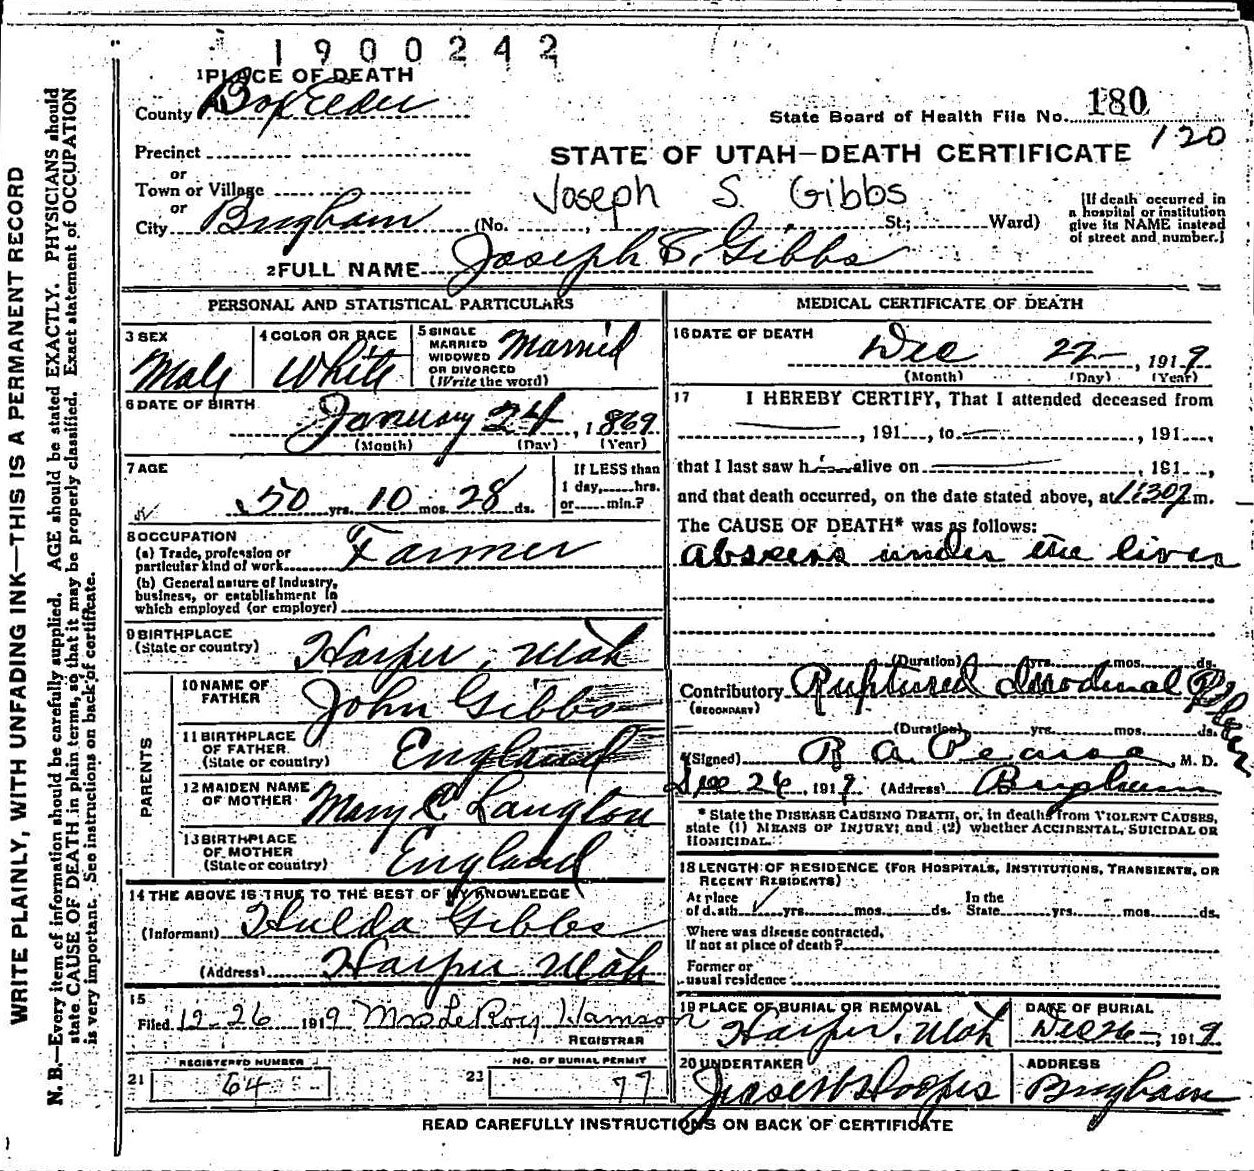 1900242
1 PLACE OF DEATH
County Box Elder
State Board of Health File No. 180
120
Precinct
or
Town or Village
or
City Brigham
STATE OF UTAH—DEATH CERTIFICATE
Joseph S. Gibbs
(No. , St.; Ward)
[If death occurred in
a hospital or institution
give its NAME instead
of street and number.]
2 FULL NAME Joseph S. Gibbs
PERSONAL AND STATISTICAL PARTICULARS
3 SEX
Male
4 COLOR OR RACE
White
5 SINGLE
MARRIED
WIDOWED
OR DIVORCED
(Write the word)
Married
6 DATE OF BIRTH
January 24, 1869
(Month) (Day) (Year)
7 AGE
50 yrs. 10 mos. 28 ds.
If LESS than
1 day, hrs.
or min.?
8 OCCUPATION
(a) Trade, profession or
particular kind of work Farmer
(b) General nature of Industry,
business, or establishment in
which employed (or employer)
9 BIRTHPLACE
(State or country) Harper, Utah
PARENTS
10 NAME OF
FATHER John Gibbs
11 BIRTHPLACE
OF FATHER
(State or country) England
12 MAIDEN NAME
OF MOTHER Mary E. Langton
13 BIRTHPLACE
OF MOTHER
(State or country) England
14 THE ABOVE IS TRUE TO THE BEST OF MY KNOWLEDGE
(Informant) Hulda Gibbs
(Address) Harper Utah
15
Filed 12-26 1919 Mrs LeRoy
REGISTRAR
REGISTERED NUMBER
21 64
NO. OF BURIAL PERMIT
23 77
MEDICAL CERTIFICATE OF DEATH
16 DATE OF DEATH
Dec 22, 1919
(Month) (Day) (Year)
17 I HEREBY CERTIFY, That I attended deceased from
, 191 , to , 191 ,
that I last saw h alive on , 191 ,
and that death occurred, on the date stated above, at m.
The CAUSE OF DEATH* was as follows:
Abscess under the liver
(Duration) yrs. mos. ds.
Contributory Ruptured
(SECONDARY)
(Duration) yrs. mos. ds.
(Signed) R A Pearse, M. D.
Dec 26 1919 (Address) Brigham
* State the DISEASE CAUSING DEATH, or, in deaths from VIOLENT CAUSES,
state (1) MEANS OF INJURY; and (2) whether ACCIDENTAL, SUICIDAL OR
HOMICIDAL.
18 LENGTH OF RESIDENCE (FOR HOSPITALS, INSTITUTIONS, TRANSIENTS, OR
RECENT RESIDENTS)
At place In the
of death yrs. mos. ds. State yrs. mos. ds.
Where was disease contracted,
if not at place of death?
Former or
usual residence
19 PLACE OF BURIAL OR REMOVAL
Harper, Utah
DATE OF BURIAL
Dec 26, 1919
20 UNDERTAKER
ADDRESS
Brigham
READ CAREFULLY INSTRUCTIONS ON BACK OF CERTIFICATE
WRITE PLAINLY, WITH UNFADING INK—THIS IS A PERMANENT RECORD
N. B.—Every item of information should be carefully supplied. AGE should be stated EXACTLY. PHYSICIANS should
state CAUSE OF DEATH in plain terms, so that it may be properly classified. Exact statement of OCCUPATION
is very important. See instructions on back of certificate.